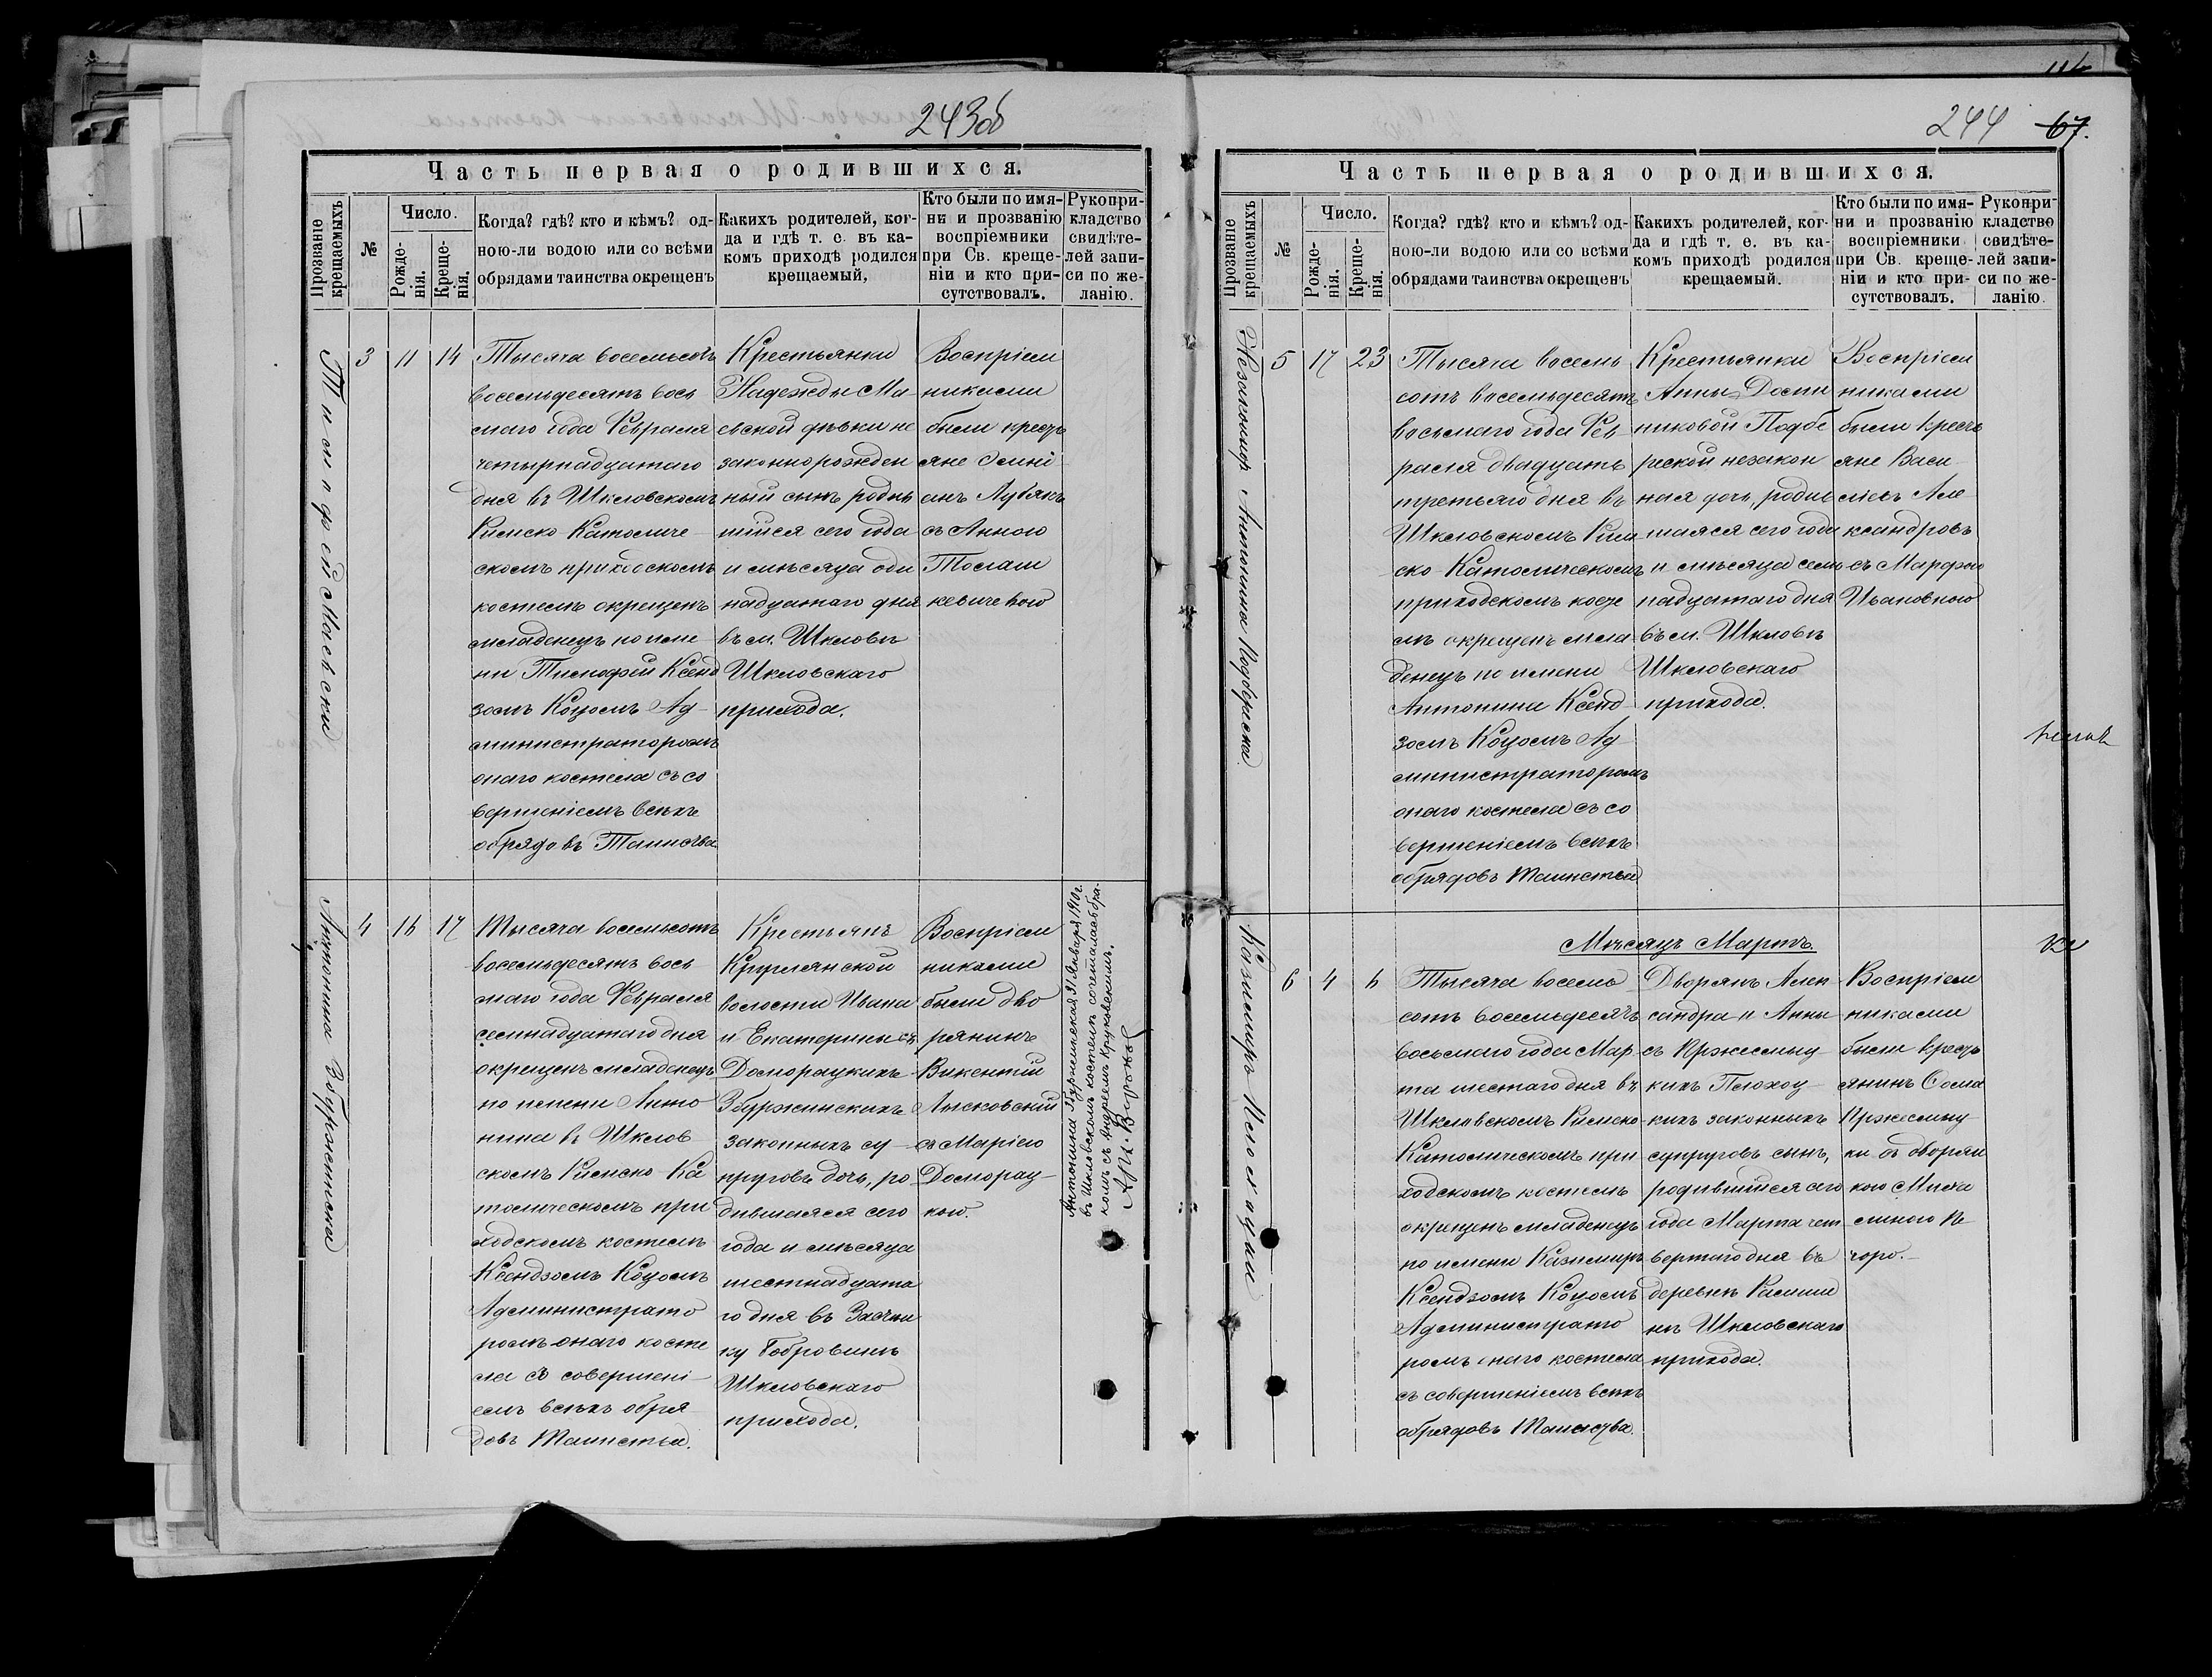 243об
Часть первая о родившихся.
Прозваніе крещаемыхъ
№
Число.
Рожде-
нія.
Креще-
нія.
Когда? гдѣ? кто и кѣмъ? од-
ною-ли водою или со всѣми
обрядами таинства окрещенъ
Какихъ родителей, ког-
да и гдѣ т. е. въ ка-
комъ приходѣ родился
крещаемый,
Кто были по имя-
ни и прозванію
воспріемники
при Св. креще-
ніи и кто при-
сутствовалъ.
Рукопри-
кладство
свидѣте-
лей запи-
си по же-
ланію.
3
11
14
Тысяча восемьсотъ
восемьдесятъ вось
маго года Февраля
четырнадцатаго
дня въ Шкловскомъ
Римско Католиче
скомъ приходскомъ
костелѣ окрещенъ
младенецъ по име
ни Тимофей Ксенд
зомъ Коцомъ Ад-
министраторомъ
онаго костела съ со
вершеніемъ всѣхъ
обрядовъ Таинства
Крестьянки
Надежды Ма
евской дѣвки не
законнорожден
ный сынъ родив
шійся сего года
и мѣсяца оди
надцатаго дня
въ м. Шкловѣ
Шкловскаго
прихода.
Воспріем
никами
были кресть
яне
съ Анною
Томаш
кевичевою
Антонина Збуржинска
4
16
17
Тысяча восемьсотъ
восемьдесятъ вось
маго года Февраля
семнадцатаго дня
окрещенъ младенецъ
по имени Анто
нина въ Шклов
скомъ Римско Ка
толическомъ при
ходскомъ костелѣ
Ксендзомъ Коцомъ
Администрато
ромъ онаго косте
ла съ совершені
емъ всѣхъ обря
довъ Таинства.
Крестьянъ
Круглянской
волости Ивана
и Екатерины съ
Доморацкихъ
Збуржинскихъ
законныхъ су
пруговъ дочь, ро
дившаяся сего
года и мѣсяца
шестнадцата
го дня въ Застѣн
ку Бобровинѣ
Шкловскаго
прихода.
Воспріем
никами
были дво
рянинъ
Викентій
Лисковскій
съ Маріею
Доморац-
кою.
Антонина Буржинская 31 Января 1910 г.
въ Шкловскомъ костелѣ сочеталась бра-
комъ съ Андреемъ Круковскимъ.
244 67.
Часть первая о родившихся.
Прозваніе крещаемыхъ
№
Число.
Рожде-
нія.
Креще-
нія.
Когда? гдѣ? кто и кѣмъ? од-
ною-ли водою или со всѣми
обрядами таинства окрещенъ
Какихъ родителей, ког-
да и гдѣ т. е. въ ка-
комъ приходѣ родился
крещаемый.
Кто были по имя-
ни и прозванію
воспріемники
при Св. креще-
ніи и кто при-
сутствовалъ.
Рукопри-
кладство
свидѣте-
лей запи-
си по же-
ланію.
Антонина Подберска
5
17
23
Тысяча восемь
сотъ восемьдесятъ
восьмаго года Фев
раля двадцать
третьяго дня въ
Шкловскомъ Рим
ско-Католическомъ
приходскомъ косте
лѣ окрещенъ мла
денецъ по имени
Антонина Ксенд
зомъ Коцомъ Ад
министраторомъ
онаго костела съ со
вершеніемъ всѣхъ
обрядовъ таинства
Крестьянки
Анны Доми
никовой Подбе
реской незакон
ная дочь, родив
шаяся сего года
и мѣсяца сем
надцатаго дня
въ м. Шкловѣ
Шкловскаго
прихода.
Воспріем
никами
были кресть
яне Васи
лій Але
ксандровъ
съ Марфою
Ивановною
Мѣсяцъ Мартъ.
6
4
6
Тысяча восемь
сотъ восемьдесятъ
восьмаго года Мар
та шестаго дня въ
Шкловскомъ Римско
Католическомъ при
ходскомъ костелѣ
окрещенъ младенецъ
по имени Казимиръ
Ксендзомъ Коцомъ
Администрато
ромъ онаго костела
съ совершеніемъ всѣхъ
обрядовъ Таинства.
Дворянъ Алек
сандра и Анны
съ Пржесмыц
кихъ Плохоц
кихъ законныхъ
супруговъ сынъ,
родившійся сего
года Марта чет
вертаго дня въ
деревнѣ
Шкловскаго
прихода.
Воспріем
никами
были кресть
янинъ Фома
Пржесмыц
ки съ дворян
кою